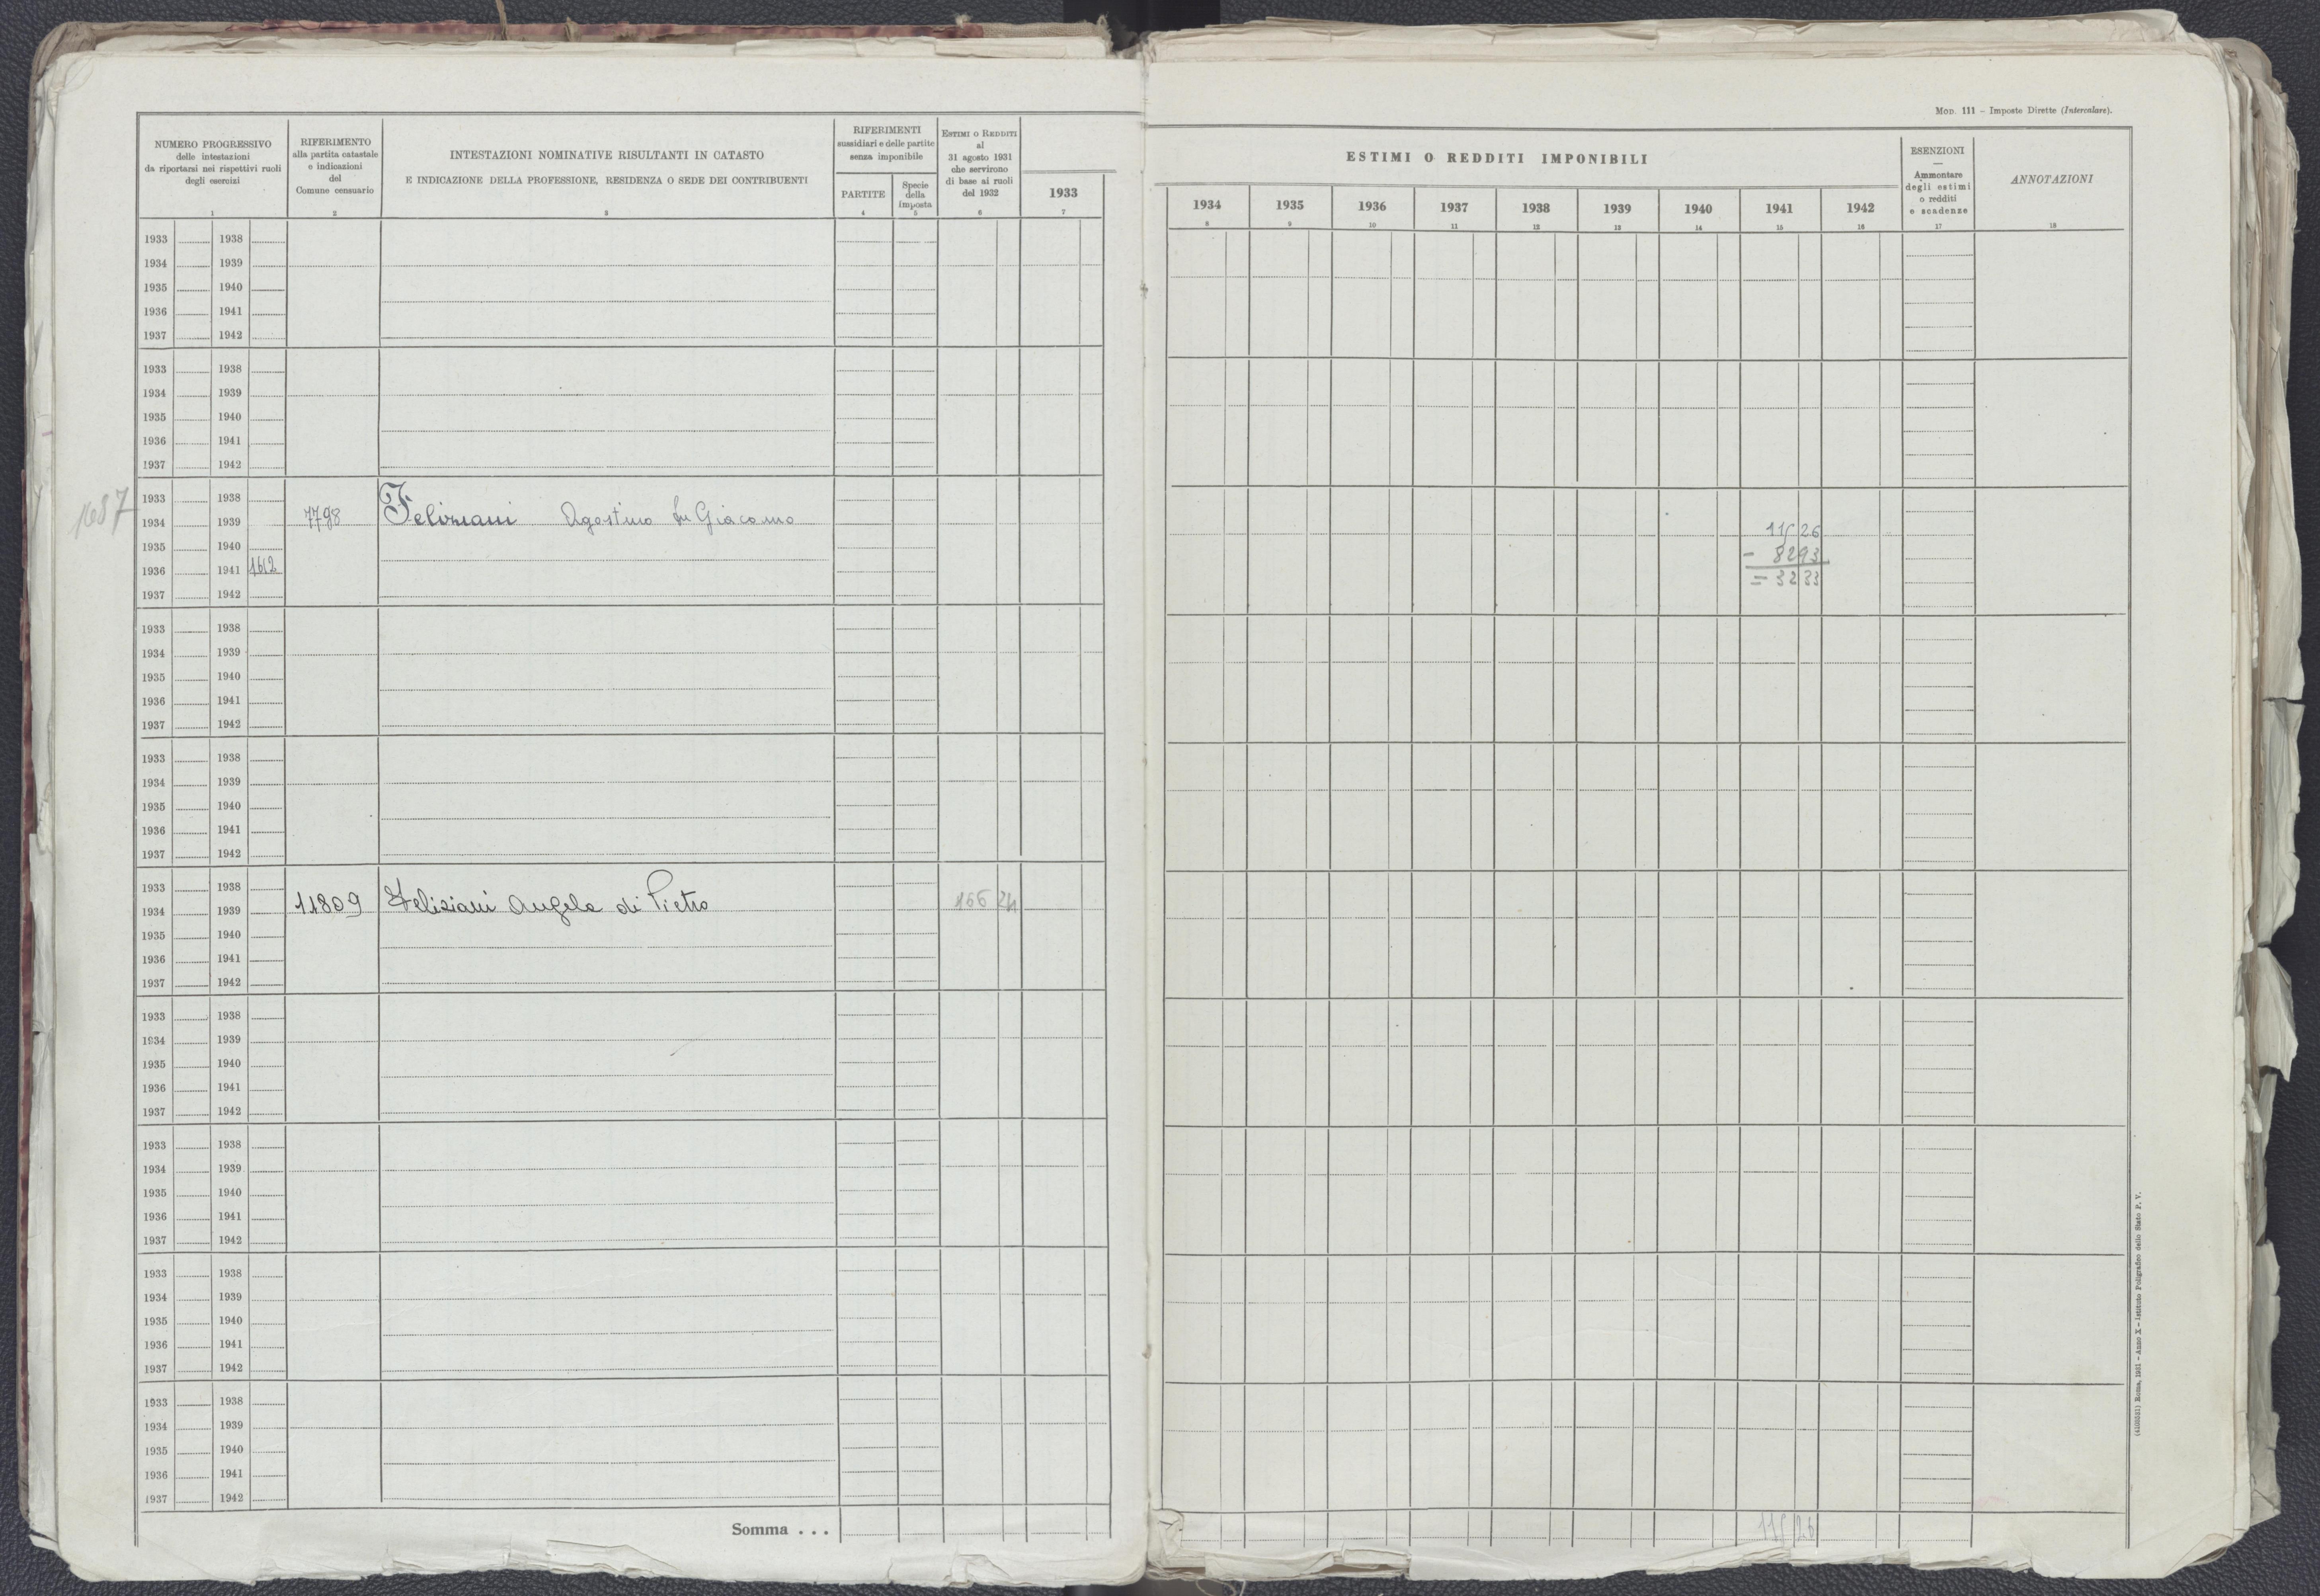 Mod. 111 – Imposte Dirette (Intercalare).
NUMERO PROGRESSIVO
delle intestazioni
da riportarsi nei rispettivi ruoli
degli esercizi
1
RIFERIMENTO
alla partita catastale
e indicazioni
del
Comune censuario
2
INTESTAZIONI NOMINATIVE RISULTANTI IN CATASTO
E INDICAZIONE DELLA PROFESSIONE, RESIDENZA O SEDE DEI CONTRIBUENTI
3
RIFERIMENTI
sussidiari e delle partite
senza imponibile
PARTITE
4
Specie
della
imposta
5
Estimi o Redditi
al
31 agosto 1931
che servirono
di base ai ruoli
del 1932
6
1933
7
ESTIMI O REDDITI IMPONIBILI
1934 1935 1936 1937 1938 1939 1940 1941 1942
8 9 10 11 12 13 14 15 16
ESENZIONI
—
Ammontare
degli estimi
o redditi
e scadenze
17
ANNOTAZIONI
18
1933 1938
1934 1939
1935 1940
1936 1941
1937 1942
1933 1938
1934 1939
1935 1940
1936 1941
1937 1942
1687
1933 1938
1934 1939 7798 Feliziani Agostino fu Giacomo
1935 1940 115 26
1936 1941 1612 - 82 93
1937 1942 = 32 33
1933 1938
1934 1939
1935 1940
1936 1941
1937 1942
1933 1938
1934 1939
1935 1940
1936 1941
1937 1942
1933 1938
1934 1939 11809 Feliziani Angelo di Pietro 166 24
1935 1940
1936 1941
1937 1942
1933 1938
1934 1939
1935 1940
1936 1941
1937 1942
1933 1938
1934 1939
1935 1940
1936 1941
1937 1942
1933 1938
1934 1939
1935 1940
1936 1941
1937 1942
1933 1938
1934 1939
1935 1940
1936 1941
1937 1942
Somma . . . 115 26
Roma, 1931 – Anno X – Istituto Poligrafico dello Stato P. V.